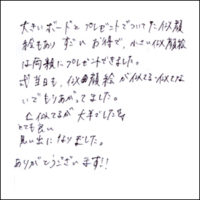 大きいボードとプレゼントでついてた似顔
絵もあり すごい お得で、小さい似顔絵
は両親にプレゼントできました。
式当日も、似顔絵が似てる似てな
いでもりあがってました。
似てるが大半でした
とても良い
思い出になりました。
ありがとうございます!!